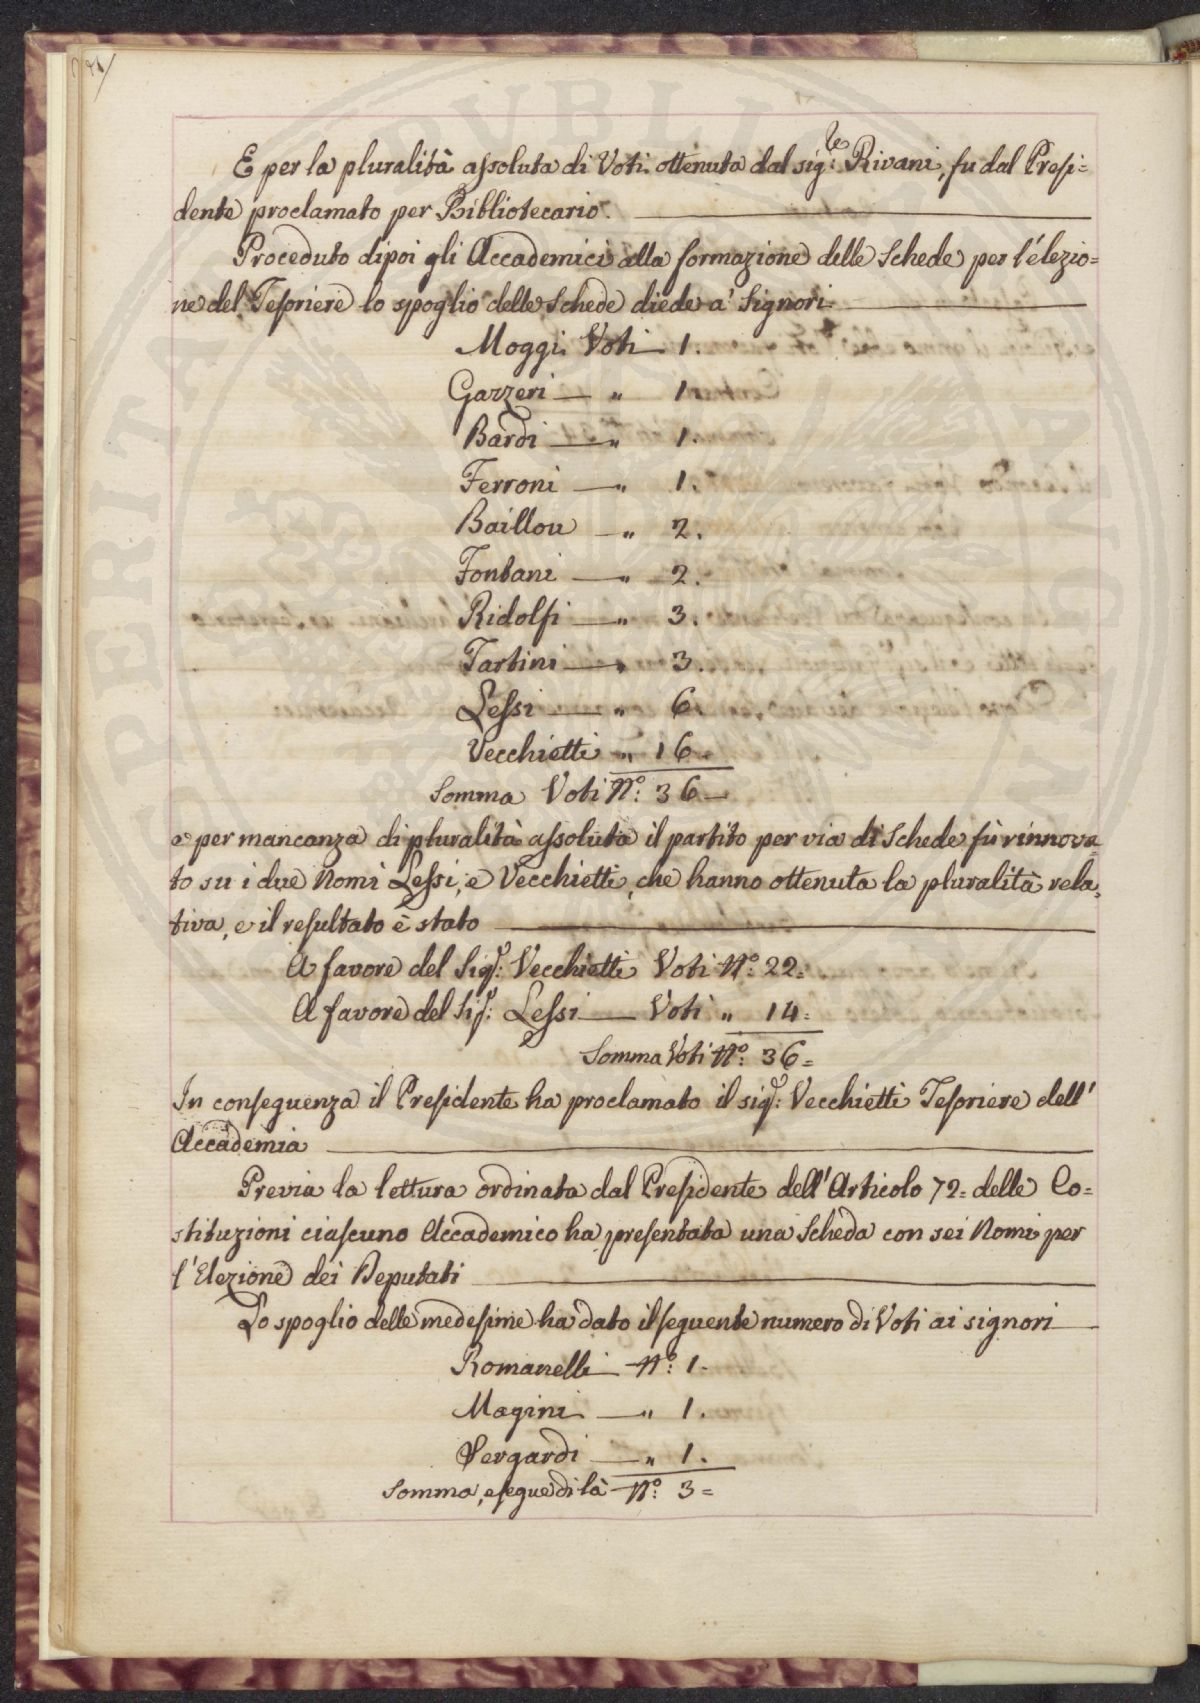 E per la pluralità assoluta di Voti ottenuta dal sig:re Rivani, fu dal Presi=
dente proclamato per Bibliotecario.
Proceduto dipoi gli Accademici alla formazione delle Schede per l'elezio=
ne del Tesoriere lo spoglio delle Schede diede a' Signori
Moggi Voti 1.
Gazzeri — " 1.
Bardi — " 1.
Ferroni — " 1.
Baillou — " 2.
Fontani — " 2.
Ridolfi — " 3.
Tartini — " 3.
Lessi — " 6.
Vecchietti " 16.
Somma Voti N.º 36 —
e per mancanza di pluralità assoluta il partito per via di Schede fù rinnova=
to su i due Nomi Lessi, e Vecchietti, che hanno ottenuta la pluralità rela=
tiva, e il resultato è stato
A favore del Sigr: Vecchietti Voti N.º 22=
A favore del Sigr: Lessi — Voti " 14=
Somma Voti N.º 36=
In conseguenza il Presidente ha proclamato il sigr: Vecchietti Tesoriere dell'
Accademia
Previa la lettura ordinata dal Presidente dell'Articolo 72= delle Co=
stituzioni ciascuno Accademico ha presentata una Scheda con sei Nomi per
l'Elezione dei Deputati
Lo spoglio delle medesime ha dato il seguente numero di Voti ai signori
Romanelli — N.º 1.
Magini — " 1.
Sergardi — " 1.
Somma, e segue di là N.º 3=